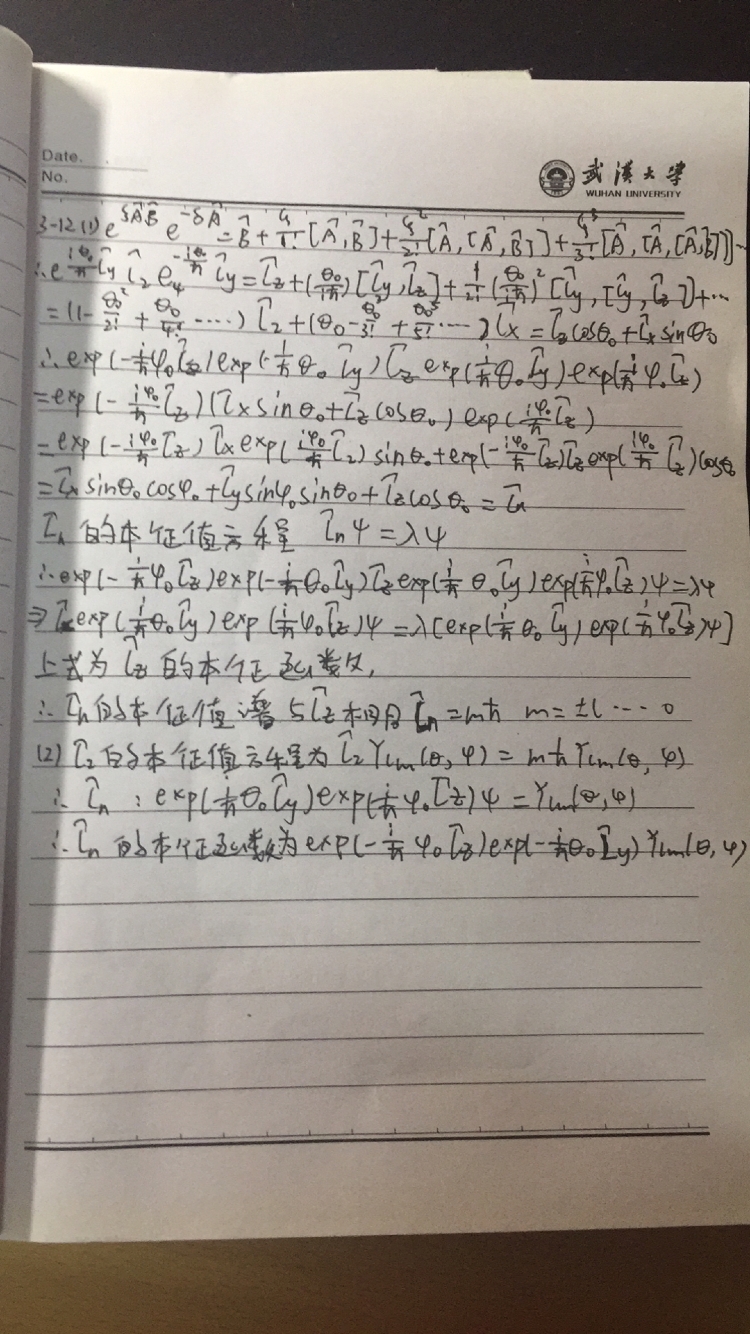 Date.
No.
武汉大学
WUHAN UNIVERSITY
3-12 (1) e^{ξÂ} B̂ e^{-ξÂ} = B̂ + ξ/1! [Â, B̂] + ξ²/2! [Â, [Â, B̂]] + ξ³/3! [Â, [Â, [Â, B̂]]] ...
∴ e^{-iθ₀/ħ l̂y} l̂z e^{iθ₀/ħ l̂y} = l̂z + (θ₀/iħ) [l̂y, l̂z] + 1/2! (θ₀/iħ)² [l̂y, [l̂y, l̂z]] + ...
= (1 - θ₀²/2! + θ₀/4! ......) l̂z + (θ₀ - θ₀³/3! + θ₀⁵/5! ...) l̂x = l̂z cosθ₀ + l̂x sinθ₀
∴ exp(-i/ħ φ₀ l̂z) exp(-i/ħ θ₀ l̂y) l̂z exp(i/ħ θ₀ l̂y) exp(i/ħ φ₀ l̂z)
= exp(-iφ₀/ħ l̂z) (l̂x sinθ₀ + l̂z cosθ₀) exp(iφ₀/ħ l̂z)
= exp(-iφ₀/ħ l̂z) l̂x exp(iφ₀/ħ l̂z) sinθ₀ + exp(-iφ₀/ħ l̂z) l̂z exp(iφ₀/ħ l̂z) cosθ₀
= l̂x sinθ₀ cosφ₀ + l̂y sinφ₀ sinθ₀ + l̂z cosθ₀ = l̂n
l̂n 的本征值方程 l̂n ψ = λψ
∴ exp(-i/ħ φ₀ l̂z) exp(-i/ħ θ₀ l̂y) l̂z exp(i/ħ θ₀ l̂y) exp(i/ħ φ₀ l̂z) ψ = λψ
⇒ l̂z exp(i/ħ θ₀ l̂y) exp(i/ħ φ₀ l̂z) ψ = λ[exp(i/ħ θ₀ l̂y) exp(i/ħ φ₀ l̂z) ψ]
上式为 l̂z 的本征函数,
∴ l̂n 的本征值谱与 l̂z 相同 l̂n = mħ m = ±l ... 0
(2) l̂z 的本征值方程为 l̂z Ylm(θ, φ) = mħ Ylm(θ, φ)
∴ l̂n : exp(i/ħ θ₀ l̂y) exp(i/ħ φ₀ l̂z) ψ = Ylm(θ, φ)
∴ l̂n 的本征函数为 exp(-i/ħ φ₀ l̂z) exp(-i/ħ θ₀ l̂y) Ylm(θ, φ)